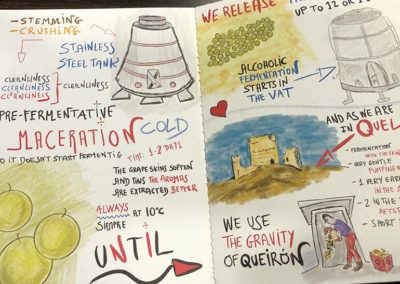 -STEMMING
-CRUSHING
STAINLESS
STEEL TANK
CLEANLINESS
CLEANLINESS
CLEANLINESS
CLEANLINESS
PRE-FERMENTATIVE
MACERATION COLD
SO IT DOESN'T START FERMENTIG
TIME: 1-2 DAYS
THE GRAPE SKINS SOFTEN
AND THUS THE AROMAS
ARE EXTRACTED BETTER
ALWAYS
SIEMPRE
AT 10°C
UNTIL
WE RELEASE
UP TO 12 OR
ALCOHOLIC
FERMENTATION
STARTS IN
THE VAT
AND AS WE ARE
IN QUEI
- FERMENTATION
WITH THE SKIN
- VERY GENTLE
PUMPING O
- 1 VERY EARL
IN THE
- 2 IN THE
AFTE
- SPORT
WE USE
THE GRAVITY
OF QUEIRÓN